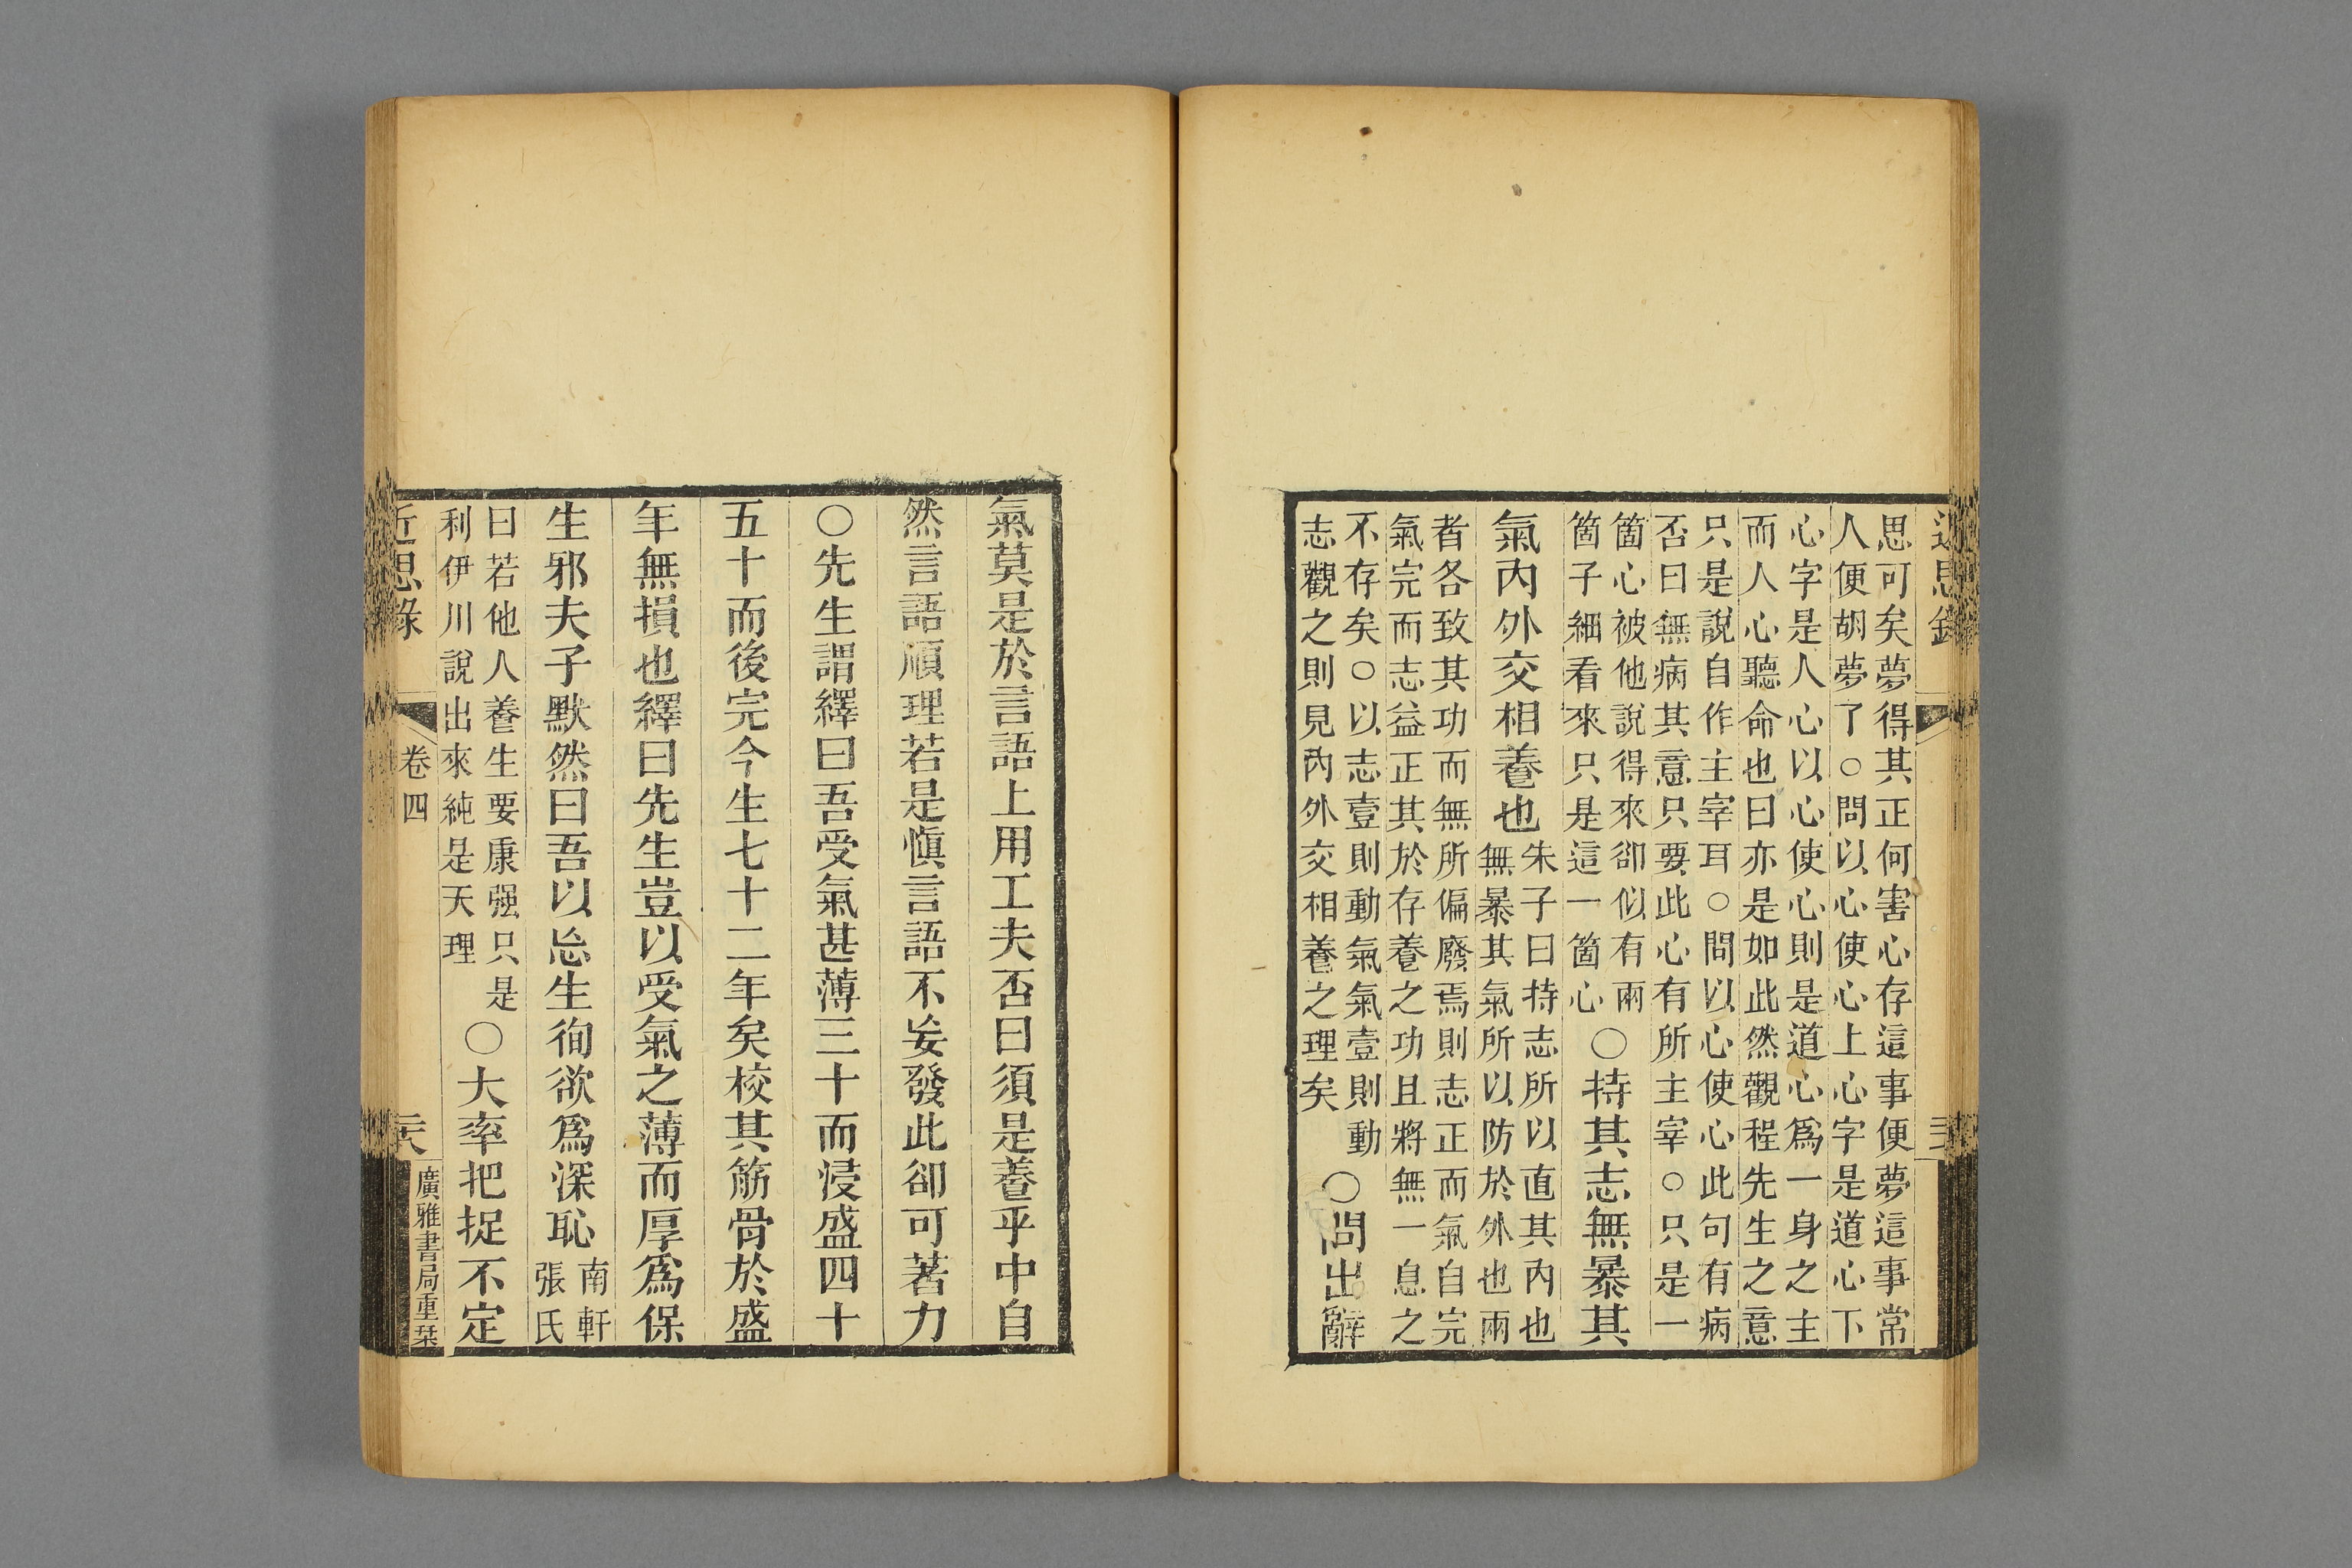 思可矣夢得其正何害心存這事便夢這事常
人便胡夢了○問以心使心上心字是道心下
心字是人心以心使心則是道心爲一身之主
而人心聽命也曰亦是如此然觀程先生之意
只是說自作主宰耳○問以心使心此句有病
否曰無病其意只要此心有所主宰○只是一
箇心被他說得來卻似有兩
箇子細看來只是這一箇心
○持其志無暴其
氣內外交相養也
朱子曰持志所以直其內也
無暴其氣所以防於外也兩
者各致其功而無所偏廢焉則志正而氣自完
氣完而志益正其於存養之功且將無一息之
不存矣○以志壹則動氣氣壹則動
志觀之則見內外交相養之理矣
○問出辭
氣莫是於言語上用工夫否曰須是養乎中自
然言語順理若是愼言語不妄發此卻可著力
○先生謂繹曰吾受氣甚薄三十而浸盛四十
五十而後完今生七十二年矣校其筋骨於盛
年無損也繹曰先生豈以受氣之薄而厚爲保
生邪夫子默然曰吾以忘生徇欲爲深恥
南軒
張氏
曰若他人養生要康强只是
利伊川說出來純是天理
○大率把捉不定
近思錄
卷四
廣雅書局重栞